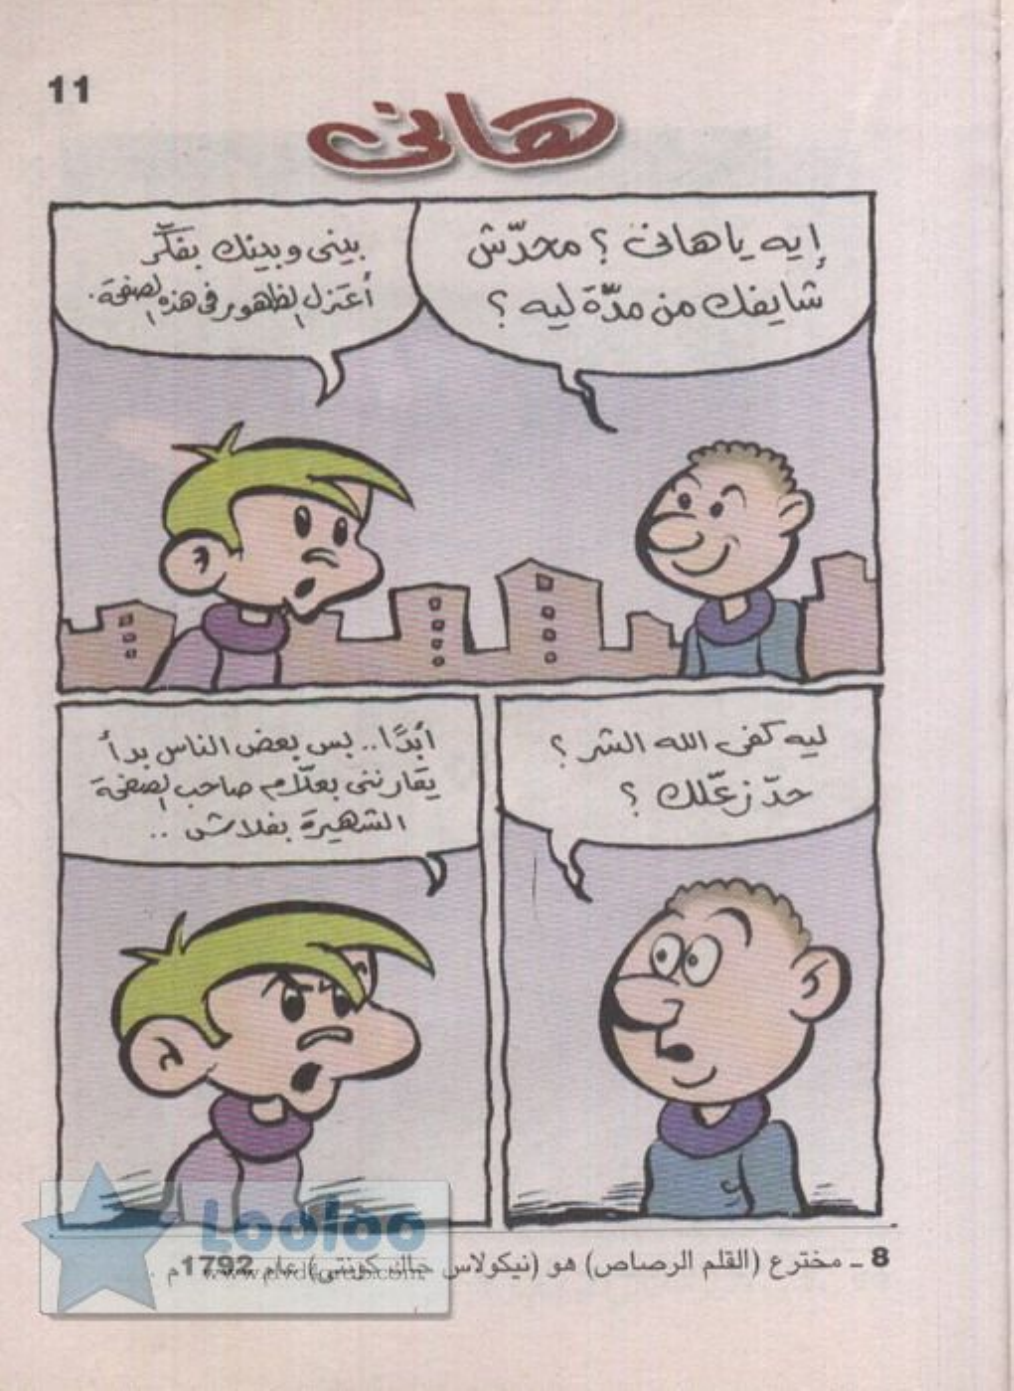 11
هانى
إيه ياهانى ؟ محدّش
شايفك من مدّة ليه ؟
بينى وبينك بفكّر
أعتزل الظهور فى هذه الصفحة .
ليه كفى الله الشر ؟
حدّ زعّلك ؟
أبدًا .. بس بعض الناس بدأ
يقارننى بعلّام صاحب الصفحة
الشهيرة بفلاش ..
8 ـ مخترع (القلم الرصاص) هو (نيكولاس جاك كونتى) عام 1792م .
Looloo